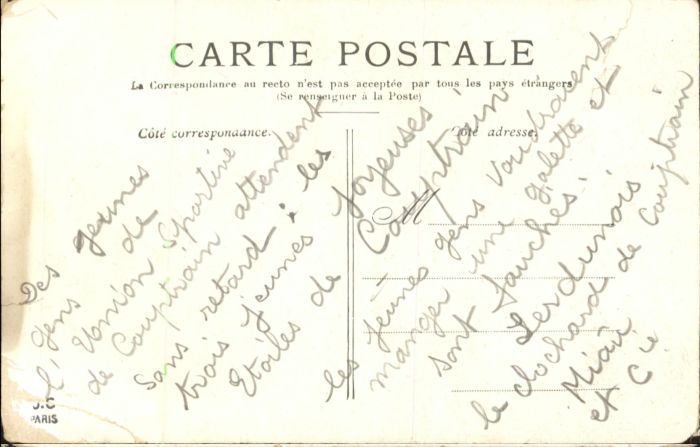 CARTE POSTALE
La Correspondance au recto n'est pas acceptée par tous les pays étrangers
(Se renseigner à la Poste)
Côté correspondance.
Côté adresse.
M
Des jeunes
gens de
l'Union Sportive
de Couptrain attendent
sans retard : les
trois jeunes joyeuses
Etoiles de Couptrain !
les jeunes gens voudraient
manger une galette et
sont fauchés !
Lesdunois
le clochard de Couptrain
Miaü
et Cie
J.C
PARIS